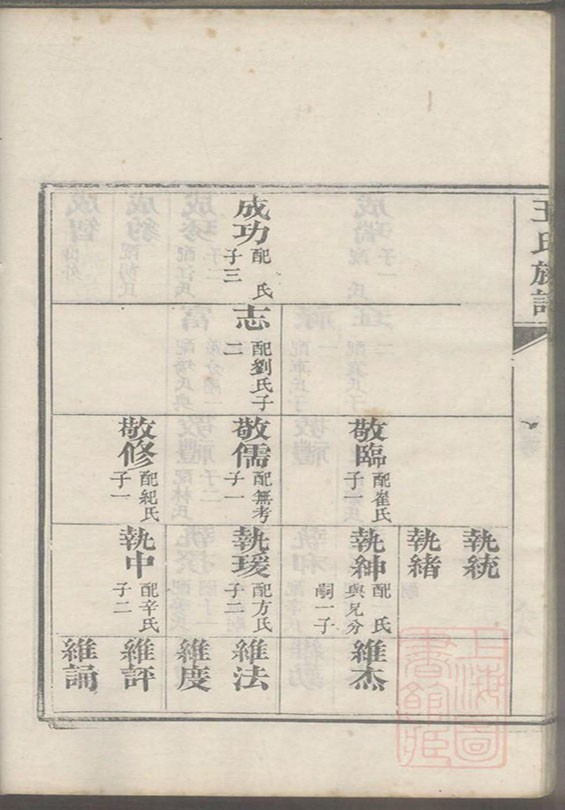 王氏族譜
成功
配 氏
子三
志
配劉氏子
二
敬臨
配崔氏
子一
敬儒
配無考
子一
敬修
配紀氏
子一
執統
執緒
執紳
配 氏
與兄分
嗣一子
執瑗
配方氏
子二
執中
配辛氏
子二
維杰
維法
維度
維評
維誦
上海圖
書館藏